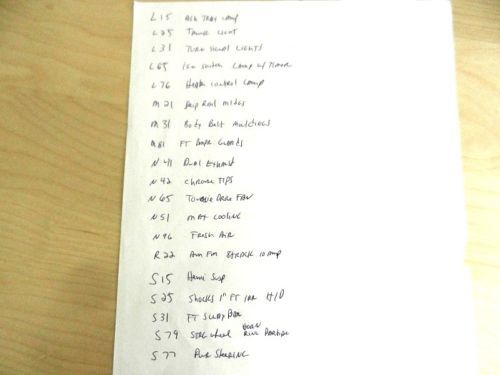 L15 Ash Tray Lamp
L25 Trunk Light
L31 Turn Signal Lights
L65 Ign Switch Lamp w/ Timer
L76 Heater Control Lamp
M21 Drip Rail mldgs
M31 Body Belt Moldings
M81 FT Bmpr Guards
N41 Dual Exhaust
N42 Chrome Tips
N65 Torque Drive Fan
N51 max cooling
N96 Fresh Air
R22 Am Fm 8 track 10 Amp
S15 Hemi Susp
S25 Shocks 1" FT 1 RR H/D
S31 FT Sway Bar
S79 Strg wheel Rim Partial
S77 Pwr Steering